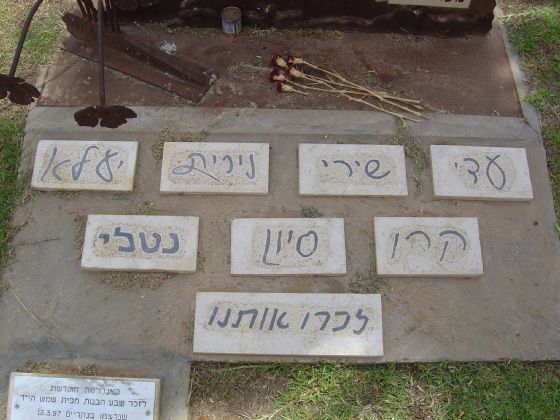 עדי שירי נירית יעלא
קרן סיון נטלי
זכרו אותנו
האנדרטה מוקדשת
לזכר שבע הבנות מבית שמש הי"ד
שנרצחו בנהריים 13.3.97